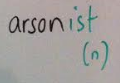 arsonist
(n)